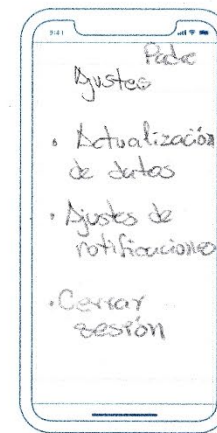 9:41
Padre
Ajustes
• Actualización
de datos
• Ajustes de
notificaciones
• Cerrar
sesión